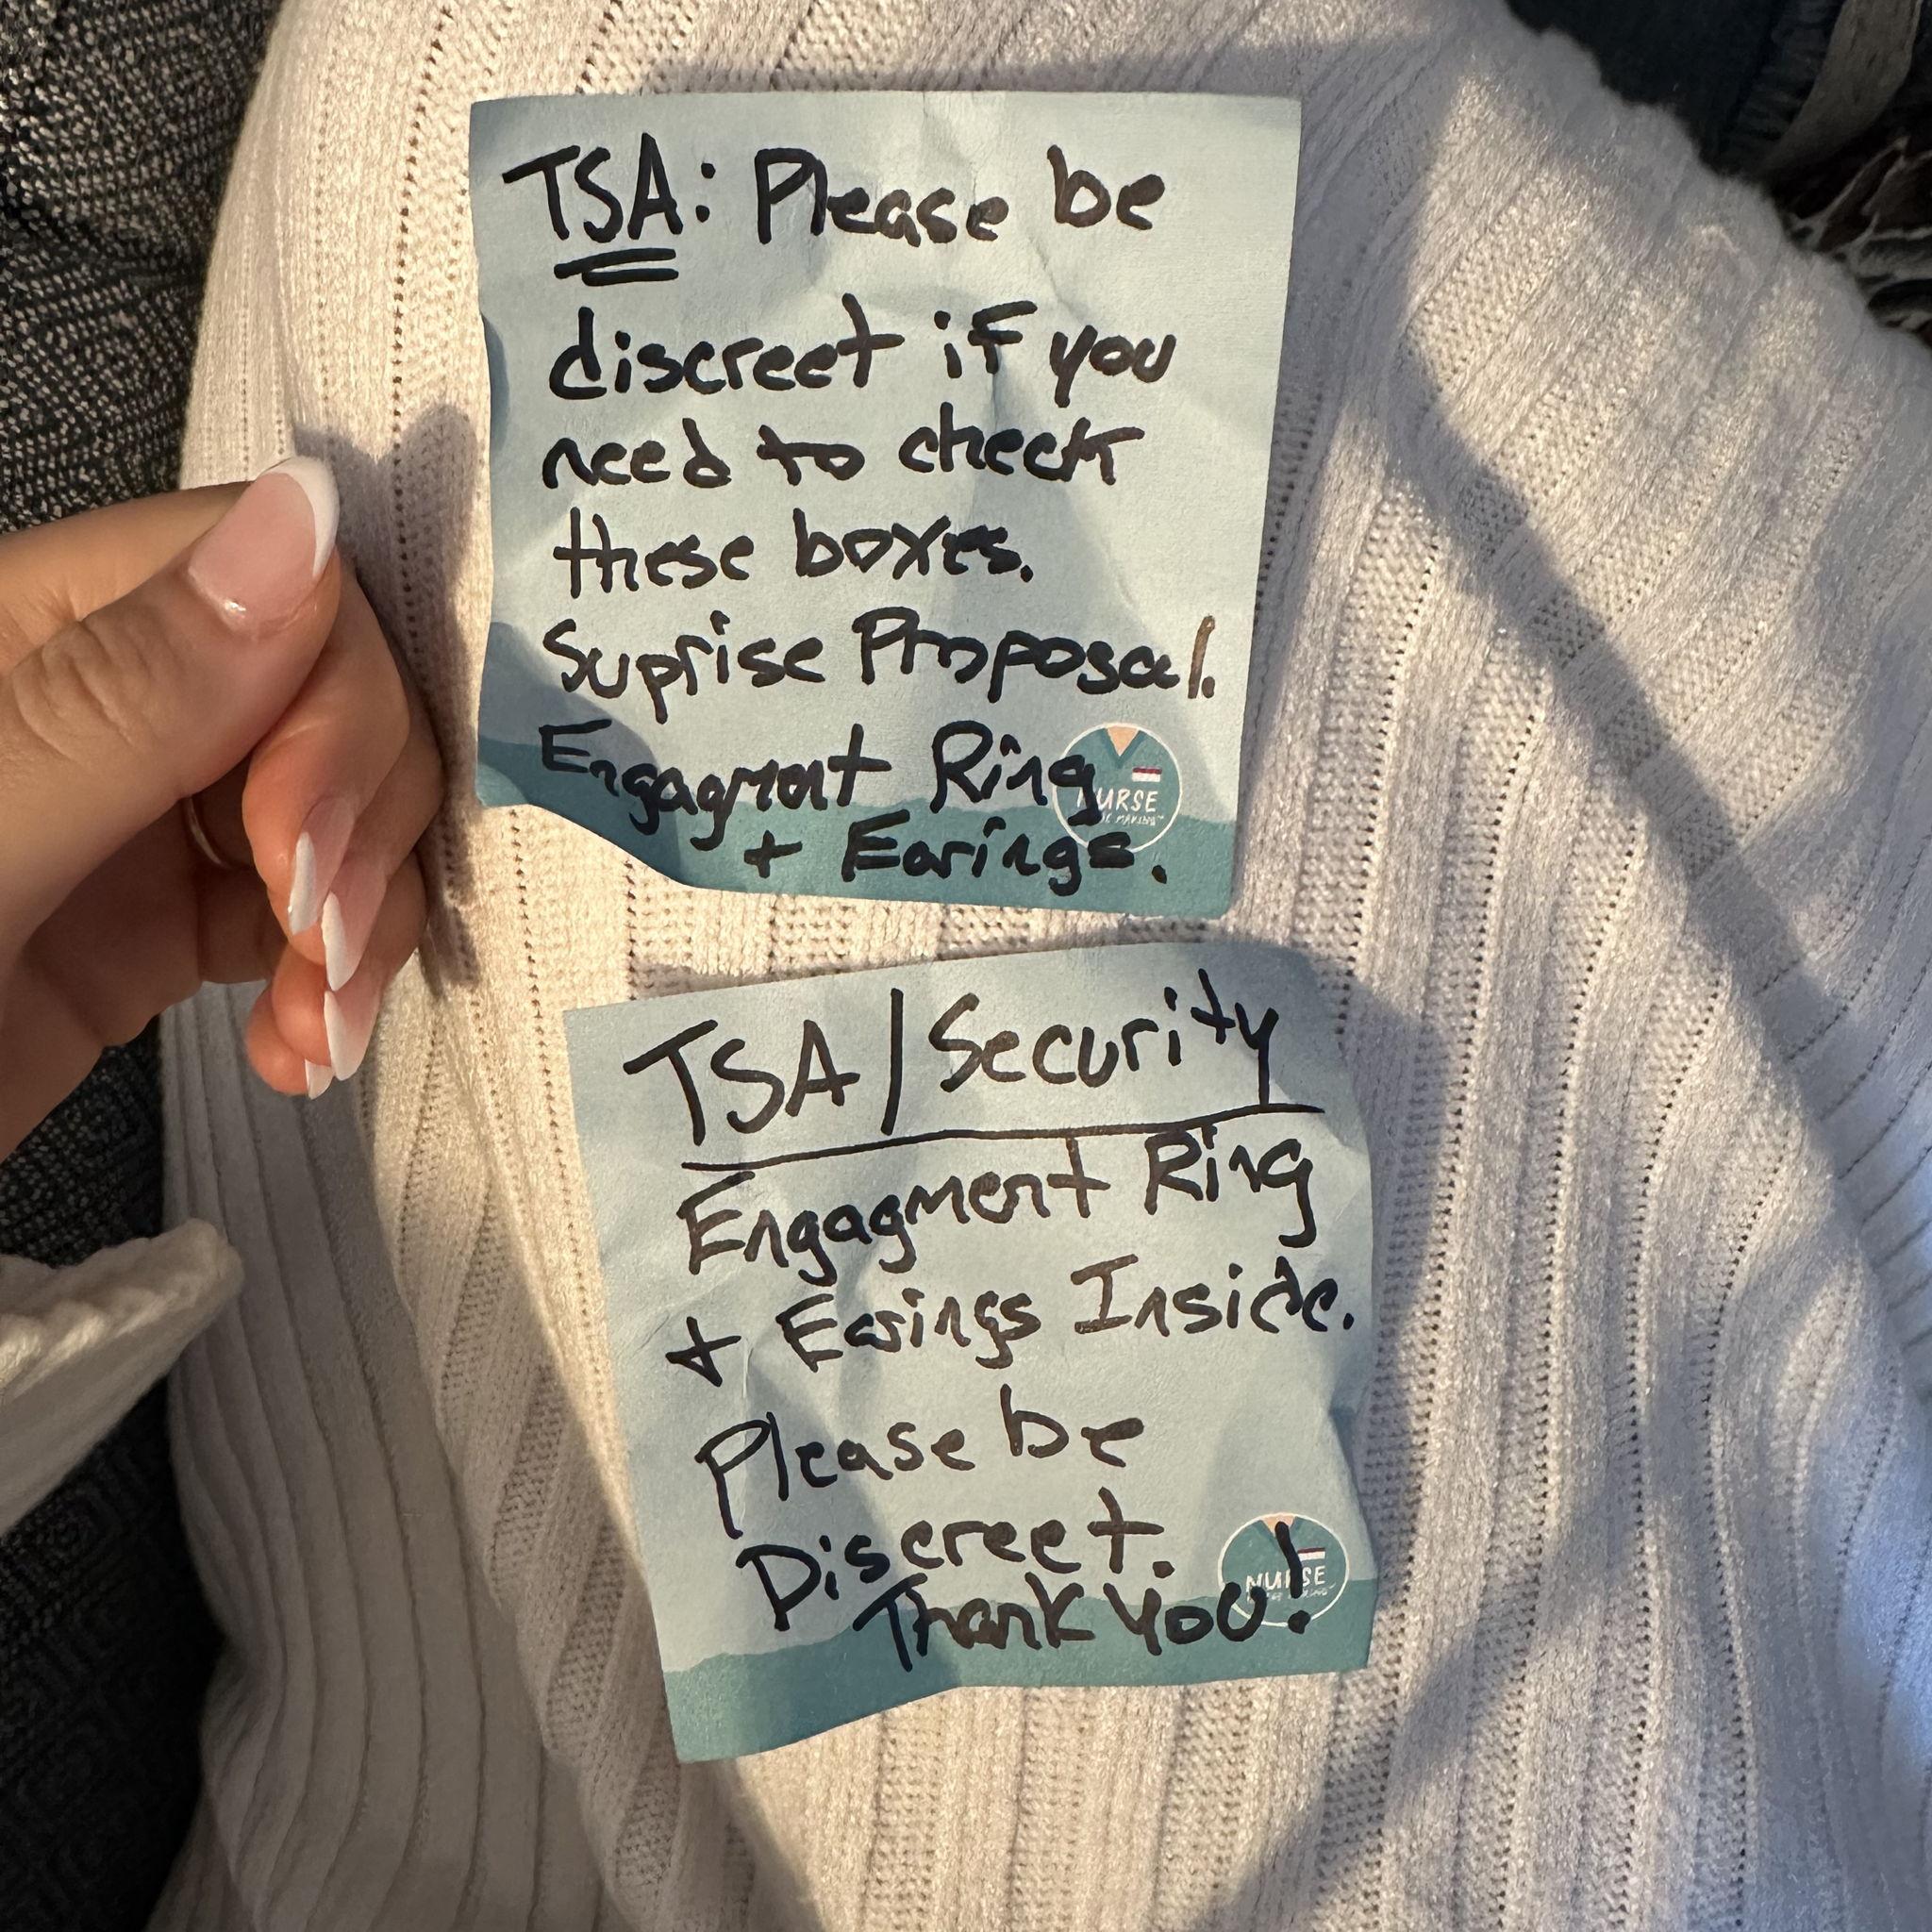 TSA: Please be
discreet if you
need to check
these boxes.
Suprise Proposal.
Engagment Ring
+ Earings.
NURSE
TSA/Security
Engagment Ring
+ Earings Inside.
Please be
Discreet.
Thank you!
NURSE